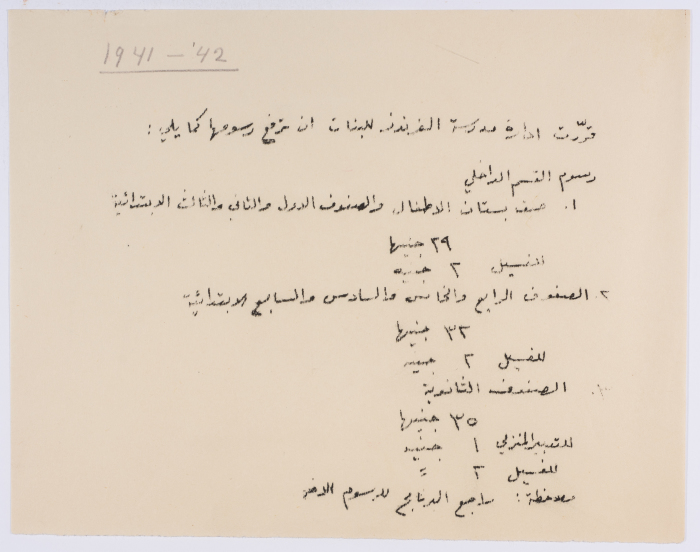 1941 - '42
قرّرت ادارة مدرسة الفرندز للبنات ان ترفع رسومها كما يلي :
رسوم القسم الداخلي
١. صف بستان الاطفال والصفوف الاول والثاني والثالث الابتدائية
٢٩ جنيها
للغسيل ٢ جنيه
٢. الصفوف الرابع والخامس والسادس والسابع الابتدائية
٣٢ جنيها
للغسيل ٢ جنيه
٣. الصفوف الثانوية
٣٥ جنيها
المنزلي ١ جنيه
للغسيل ٢ =
ملاحظة : راجع البرنامج للرسوم